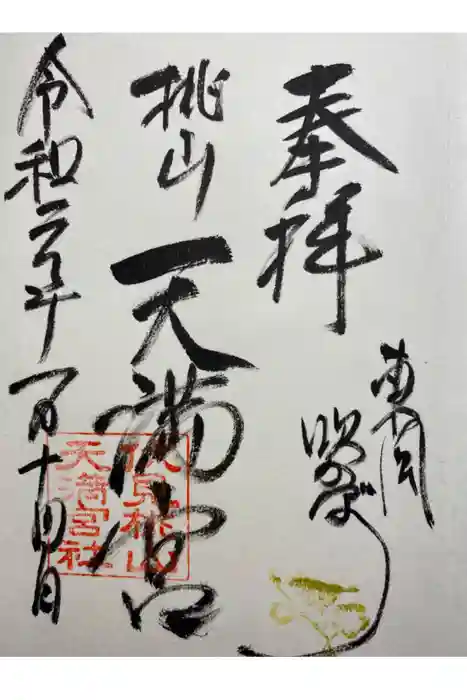 奉拝
東風
吹かば
桃山
天満宮
伏見桃山
天満宮社
令和二年一月十四日